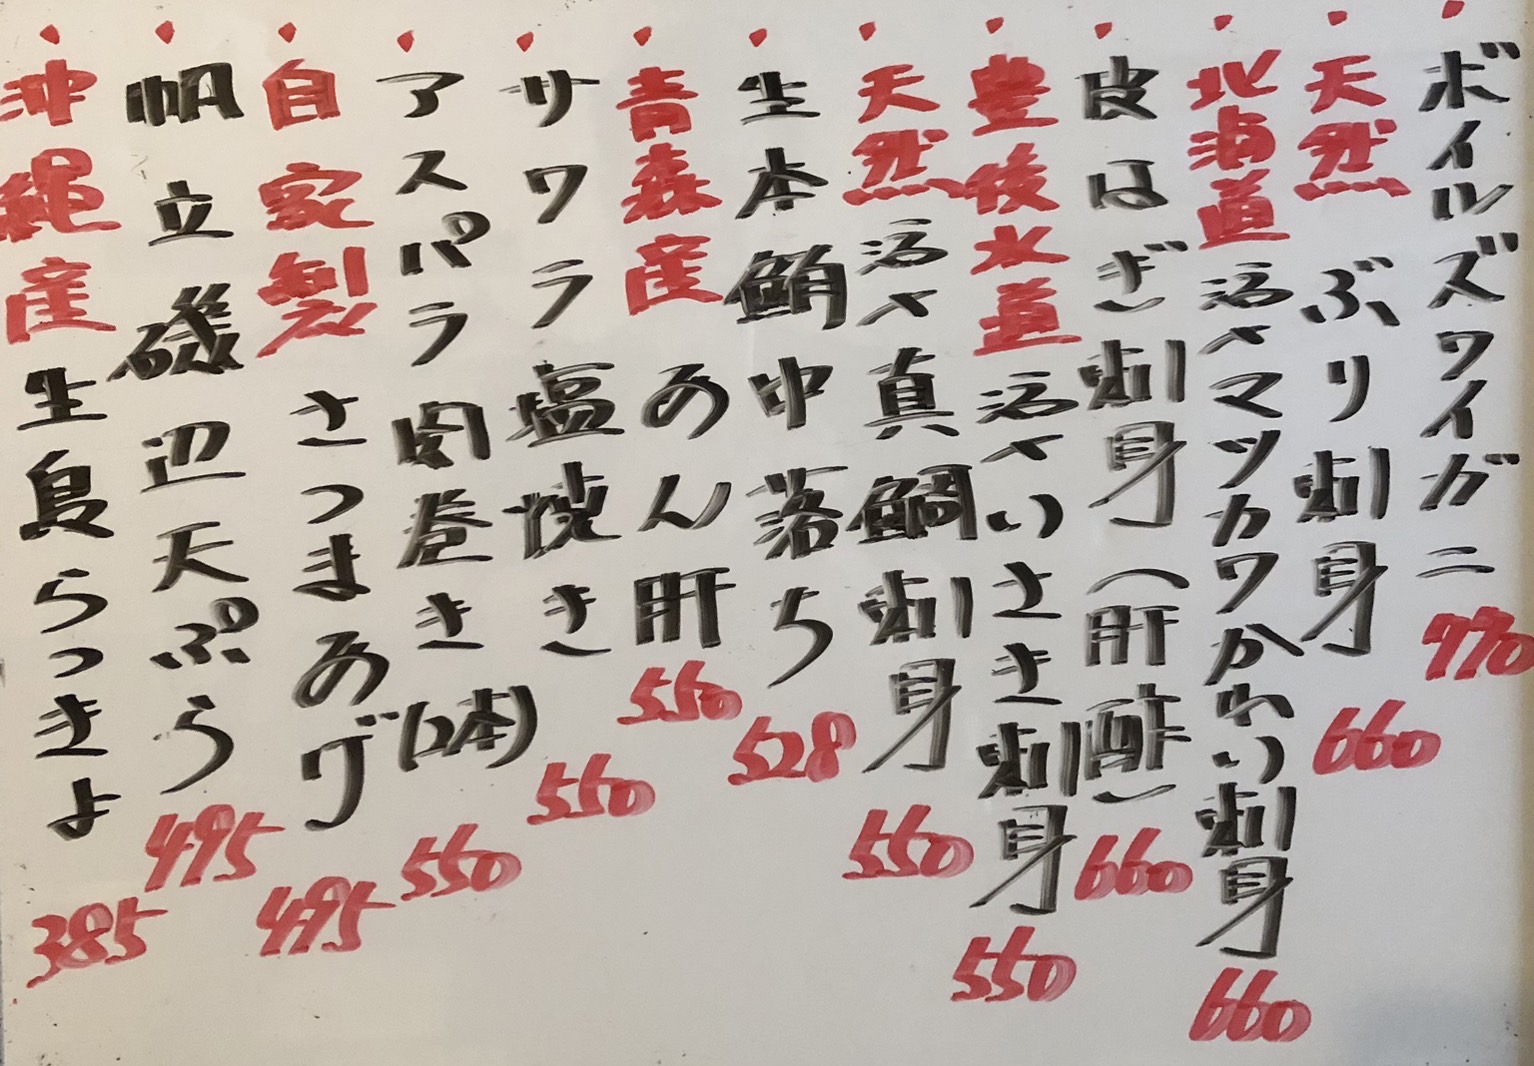 ボイルズワイガニ 770
天然ぶり刺身 660
北海道活〆マツカワかれい刺身 660
皮はぎ刺身(肝酢) 660
豊後水道活〆いさき刺身 550
天然活〆真鯛刺身 550
生本鮪中落ち 528
青森産あん肝 550
サワラ塩焼き 550
アスパラ肉巻き(2本) 550
自家製さつまあげ 495
帆立磯辺天ぷら 495
沖縄産生島らっきょ 385